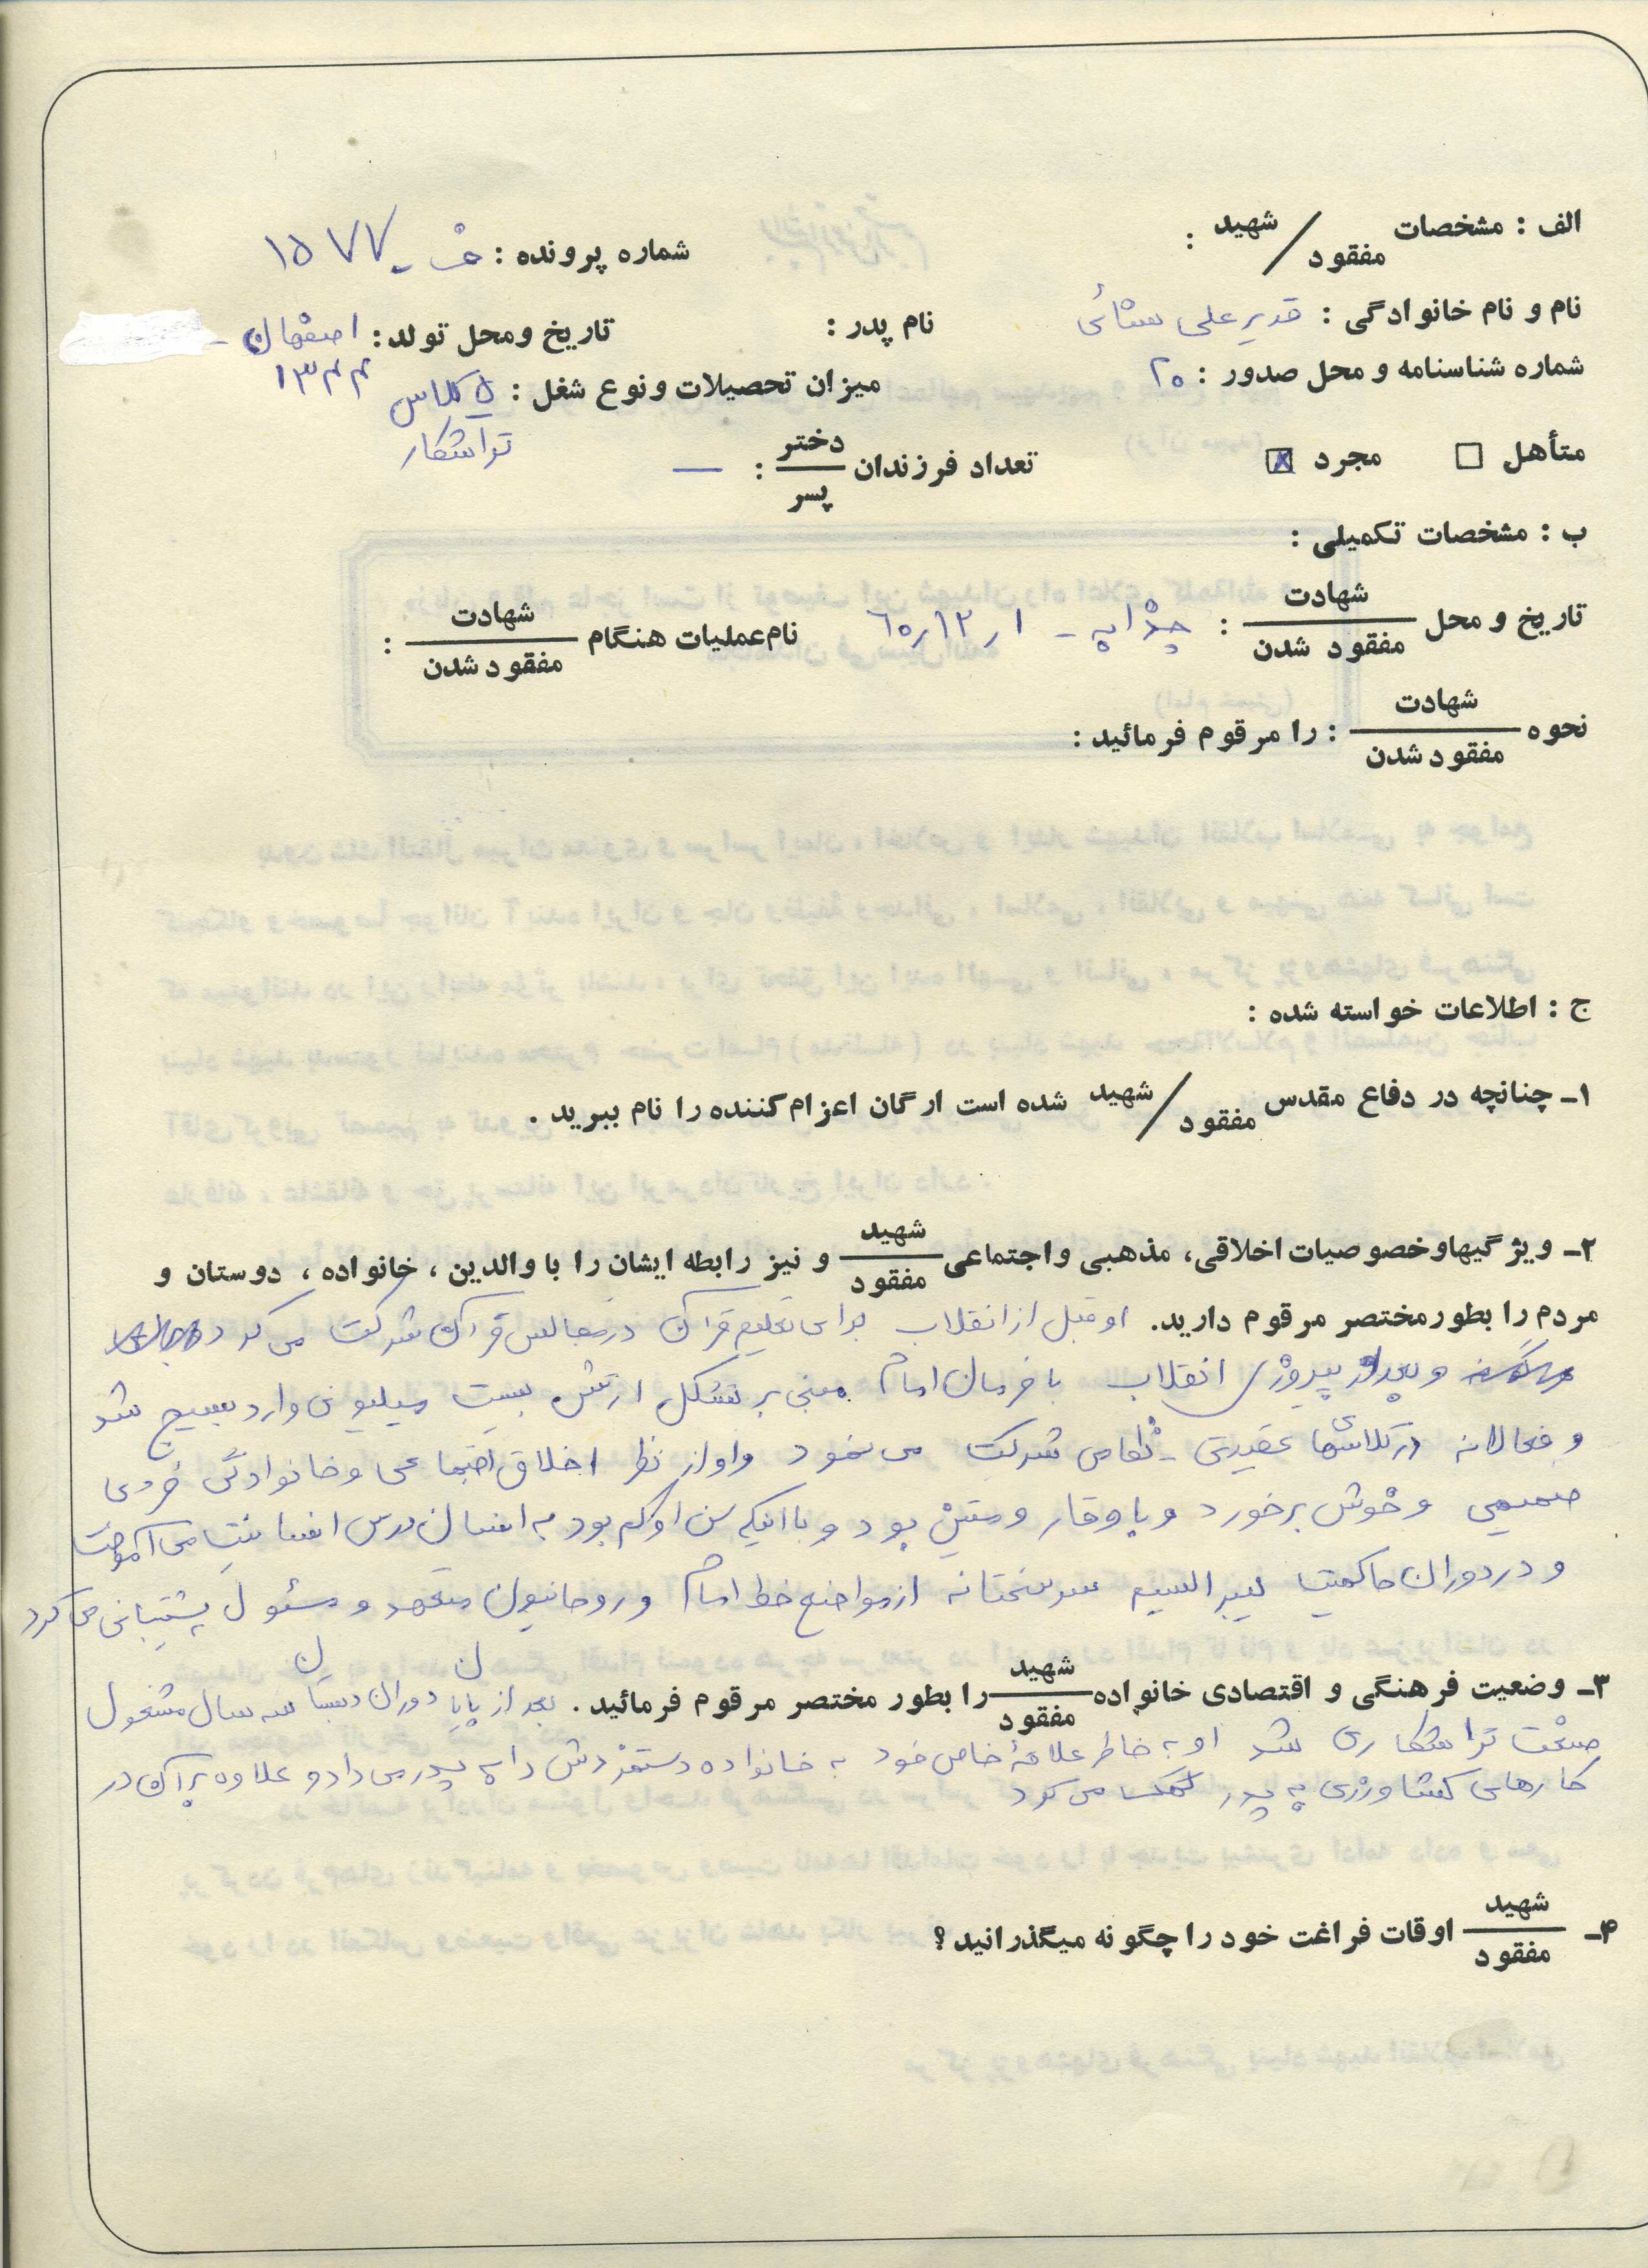 الف : مشخصات شهید / مفقود :
شماره پرونده : ۱۵۷۷
نام و نام خانوادگی : قدیر علی سنائی
نام پدر :
تاریخ ومحل تولد : اصفهان -
۱۳۴۴
شماره شناسنامه و محل صدور : ۲۰
میزان تحصیلات ونوع شغل : ۵ کلاس
تراشکار
متأهل □ مجرد ☒
تعداد فرزندان دختر / پسر : —
ب : مشخصات تکمیلی :
تاریخ و محل شهادت / مفقود شدن : چذابه - ۶۰/۱۲/۱
نام عملیات هنگام شهادت / مفقود شدن :
نحوه شهادت / مفقود شدن : را مرقوم فرمائید :
ج : اطلاعات خواسته شده :
۱- چنانچه در دفاع مقدس شهید / مفقود شده است ارگان اعزام کننده را نام ببرید .
۲- ویژگیهاوخصوصیات اخلاقی، مذهبی واجتماعی شهید / مفقود و نیز رابطه ایشان را با والدین ، خانواده ، دوستان و
مردم را بطورمختصر مرقوم دارید. او قبل از انقلاب برای تعلیم قرآن در مجالس قرآن شرکت می کرد
و بعد از پیروزی انقلاب با فرمان امام مبنی بر تشکل ارتش بیست میلیونی وارد بسیج شد
و فعالانه در تلاشهای عقیدتی - نظامی شرکت می نمود و او از نظر اخلاق اجتماعی و خانوادگی فردی
صمیمی و خوش برخورد و با وقار و متین بود و با اینکه سن او کم بود به انسان درس انسانیت می آموخت
و در دوران حاکمیت لیبرالیسم سرسختانه از مواضع خط امام و روحانیون متعهد و مسئول پشتیبانی می کرد
۳- وضعیت فرهنگی و اقتصادی خانواده شهید / مفقود را بطور مختصر مرقوم فرمائید . بعد از پایان دوران دبستان سه سال مشغول
صنعت تراشکاری شد او به خاطر علاقهٔ خاص خود به خانواده دستمزدش را به پدر می داد و علاوه بر آن در
کارهای کشاورزی به پدر کمک می کرد
۴- شهید / مفقود اوقات فراغت خود را چگونه میگذرانید ؟